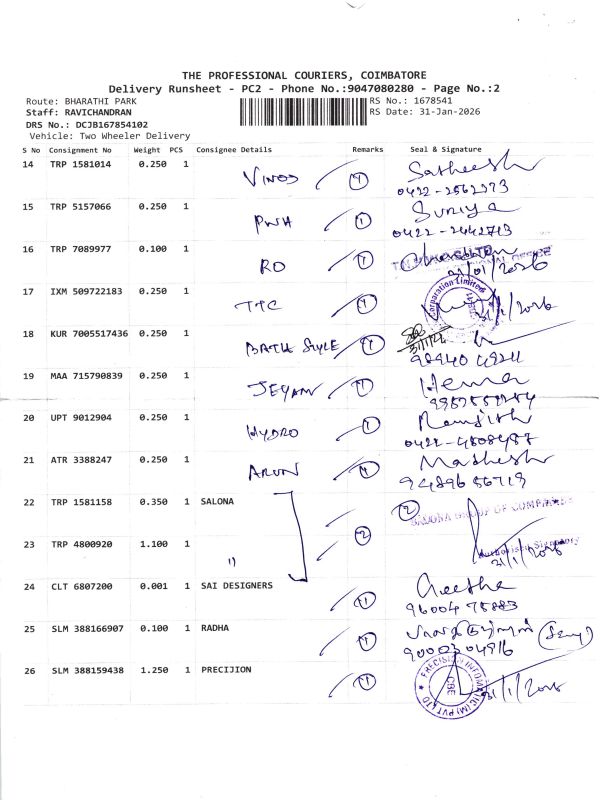 THE PROFESSIONAL COURIERS, COIMBATORE
Delivery Runsheet - PC2 - Phone No.:9047080280 - Page No.:2
Route: BHARATHI PARK
RS No.: 1678541
Staff: RAVICHANDRAN
RS Date: 31-Jan-2026
DRS No.: DCJB167854102
Vehicle: Two Wheeler Delivery
S No Consignment No Weight PCS Consignee Details Remarks Seal & Signature
14 TRP 1581014 0.250 1 VINOD 1 Satheesh
0422-2562373
15 TRP 5157066 0.250 1 PWH 1 Suriya
0422-2442713
16 TRP 7089977 0.100 1 RO 1
31/01/2026
17 IXM 509722183 0.250 1 TTC 1 Corporation Limited
31/1/2026
18 KUR 7005517436 0.250 1 BATH STYLE 1
19 MAA 715790839 0.250 1 JEYAM 1 Hema
20 UPT 9012904 0.250 1 HYDRO 1 Ranjith
0422-4808487
21 ATR 3388247 0.250 1 ARUN 1 Mathesh
94896 56719
22 TRP 1581158 0.350 1 SALONA 2 SALONA GROUP OF COMPANIES
23 TRP 4800920 1.100 1 " 2 Authorised Signatory
31/1/2026
24 CLT 6807200 0.001 1 SAI DESIGNERS 1 Geetha
96004 75883
25 SLM 388166907 0.100 1 RADHA 1
9000304916
26 SLM 388159438 1.250 1 PRECIJION 1 PRECISION INFOMATIC (M) PVT LTD
CBE
31/1/2026